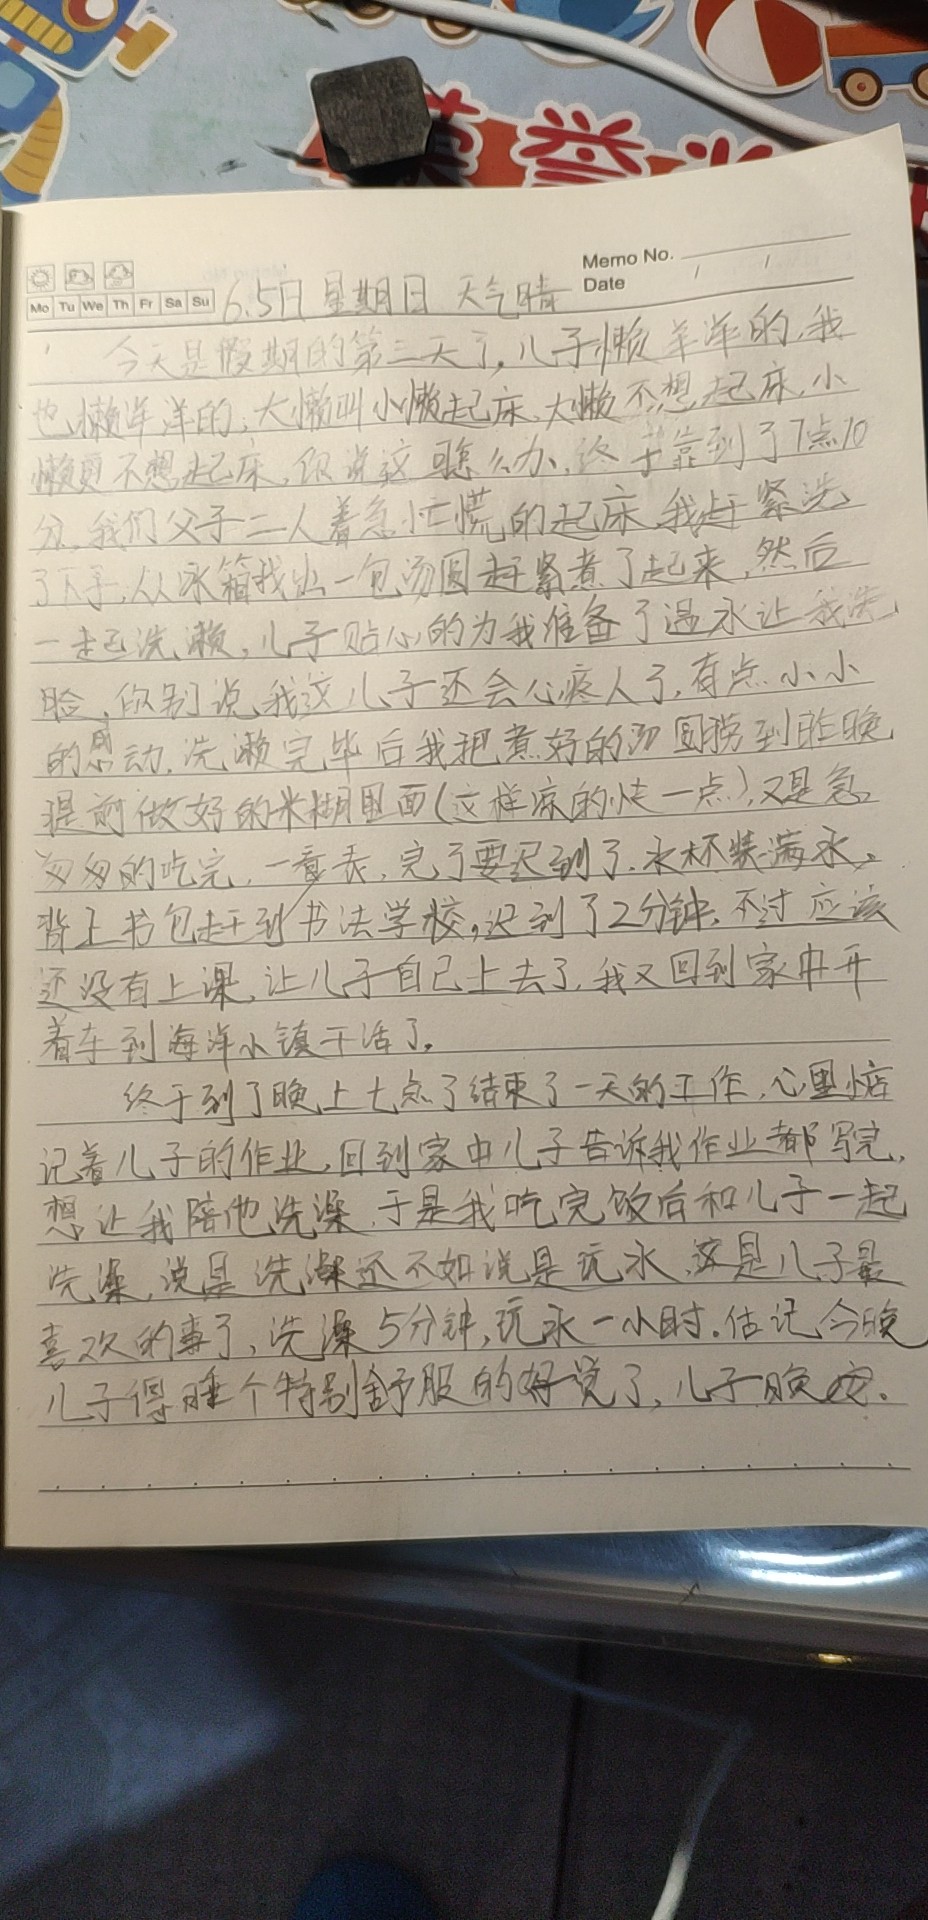 荣誉
Memo No.
Date
Mo Tu We Th Fr Sa Su
6.5日 星期日 天气晴
今天是假期的第三天了,儿子懒羊洋的,我
也懒洋洋的,大懒叫小懒起床,大懒不想起床,小
懒更不想起床,你说这可怎么办,终于靠到了7点10
分,我们父子二人着急忙慌的起床,我赶紧洗
了下手,从冰箱找出一包汤圆赶紧煮了起来,然后
一起洗濑,儿子贴心的为我准备了温水让我洗
脸,你别说我这儿子还会心疼人了,有点小小
的感动,洗濑完毕后我把煮好的汤圆捞到昨晚
提前做好的米糊里面(这样凉的快一点),又是急
匆匆的吃完,一看表,完了要迟到了,水杯装满水,
背上书包赶到书法学校,迟到了2分钟,不过应该
还没有上课,让儿子自己上去了,我又回到家中开
着车到海洋小镇干活了。
终于到了晚上七点了结束了一天的工作,心里惦
记着儿子的作业,回到家中儿子告诉我作业都写完,
想让我陪他洗澡,于是我吃完饭后和儿子一起
洗澡,说是洗澡还不如说是玩水,这是儿子最
喜欢的事了,洗澡5分钟,玩水一小时。估记今晚
儿子得睡个特别舒服的好觉了,儿子晚安。